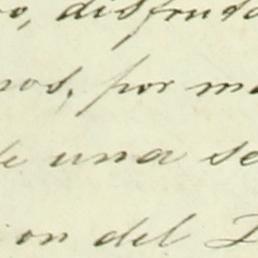 o, disfruta
nos, por m
de una se
ion del D